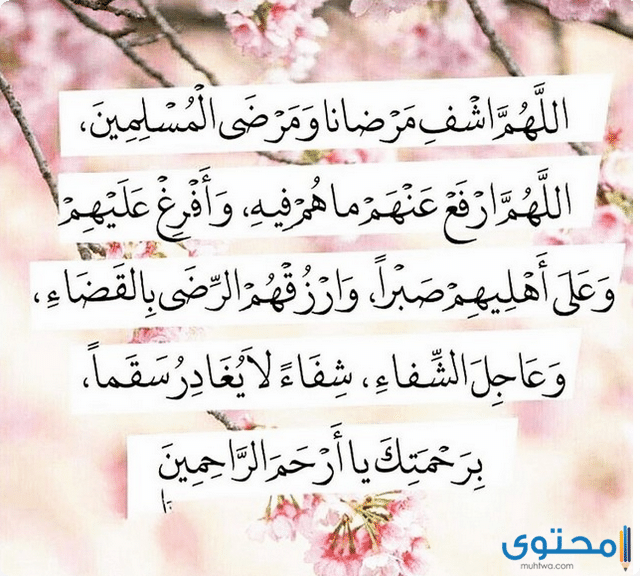 اللَّهُمَّ اشْفِ مَرْضانا وَمَرْضَى الْمُسْلِمِينَ،
اللَّهُمَّ ارْفَعْ عَنْهَمْ ما هُمْ فِيهِ، وَأَفْرِغْ عَلَيْهِمْ
وَعَلَى أَهْلِيهِمْ صَبْراً، وَارْزُقْهُمْ الرِّضَى بِالقَضَاءِ،
وَعَاجِلَ الشِّفاءِ، شِفَاءً لاَ يُغَادِرُ سَقَماً،
بِرَحْمَتِكَ يا أَرْحَمَ الرَّاحِمِينَ
محتوى
muhtwa.com